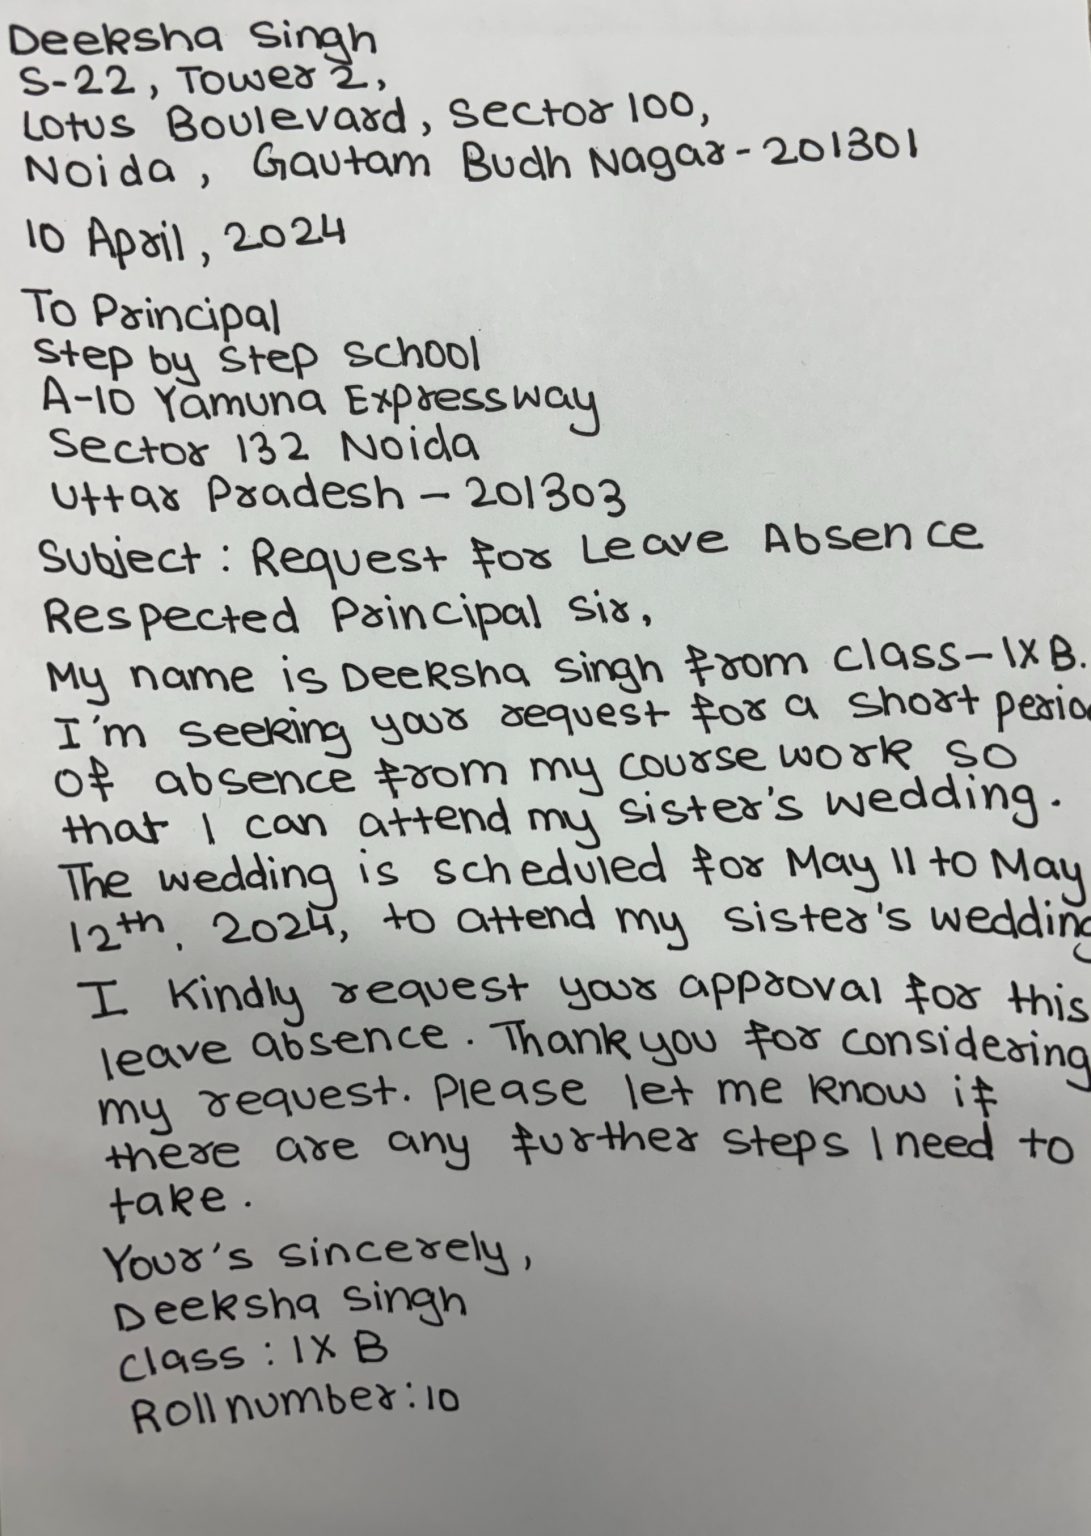 Deeksha Singh
S-22, Tower 2,
Lotus Boulevard, Sector 100,
Noida, Gautam Budh Nagar-201301
10 April, 2024
To Principal
Step by Step School
A-10 Yamuna Expressway
Sector 132 Noida
Uttar Pradesh - 201303
Subject : Request for Leave Absence
Respected Principal Sir,
My name is Deeksha Singh from class-IX B.
I'm seeking your request for a short perio
of absence from my course work so
that I can attend my sister's wedding.
The wedding is scheduled for May 11 to May
12th, 2024, to attend my sister's wedding
I kindly request your approval for this
leave absence. Thank you for considering
my request. Please let me know if
there are any further steps I need to
take.
Your's sincerely,
Deeksha Singh
Class : IX B
Roll number: 10